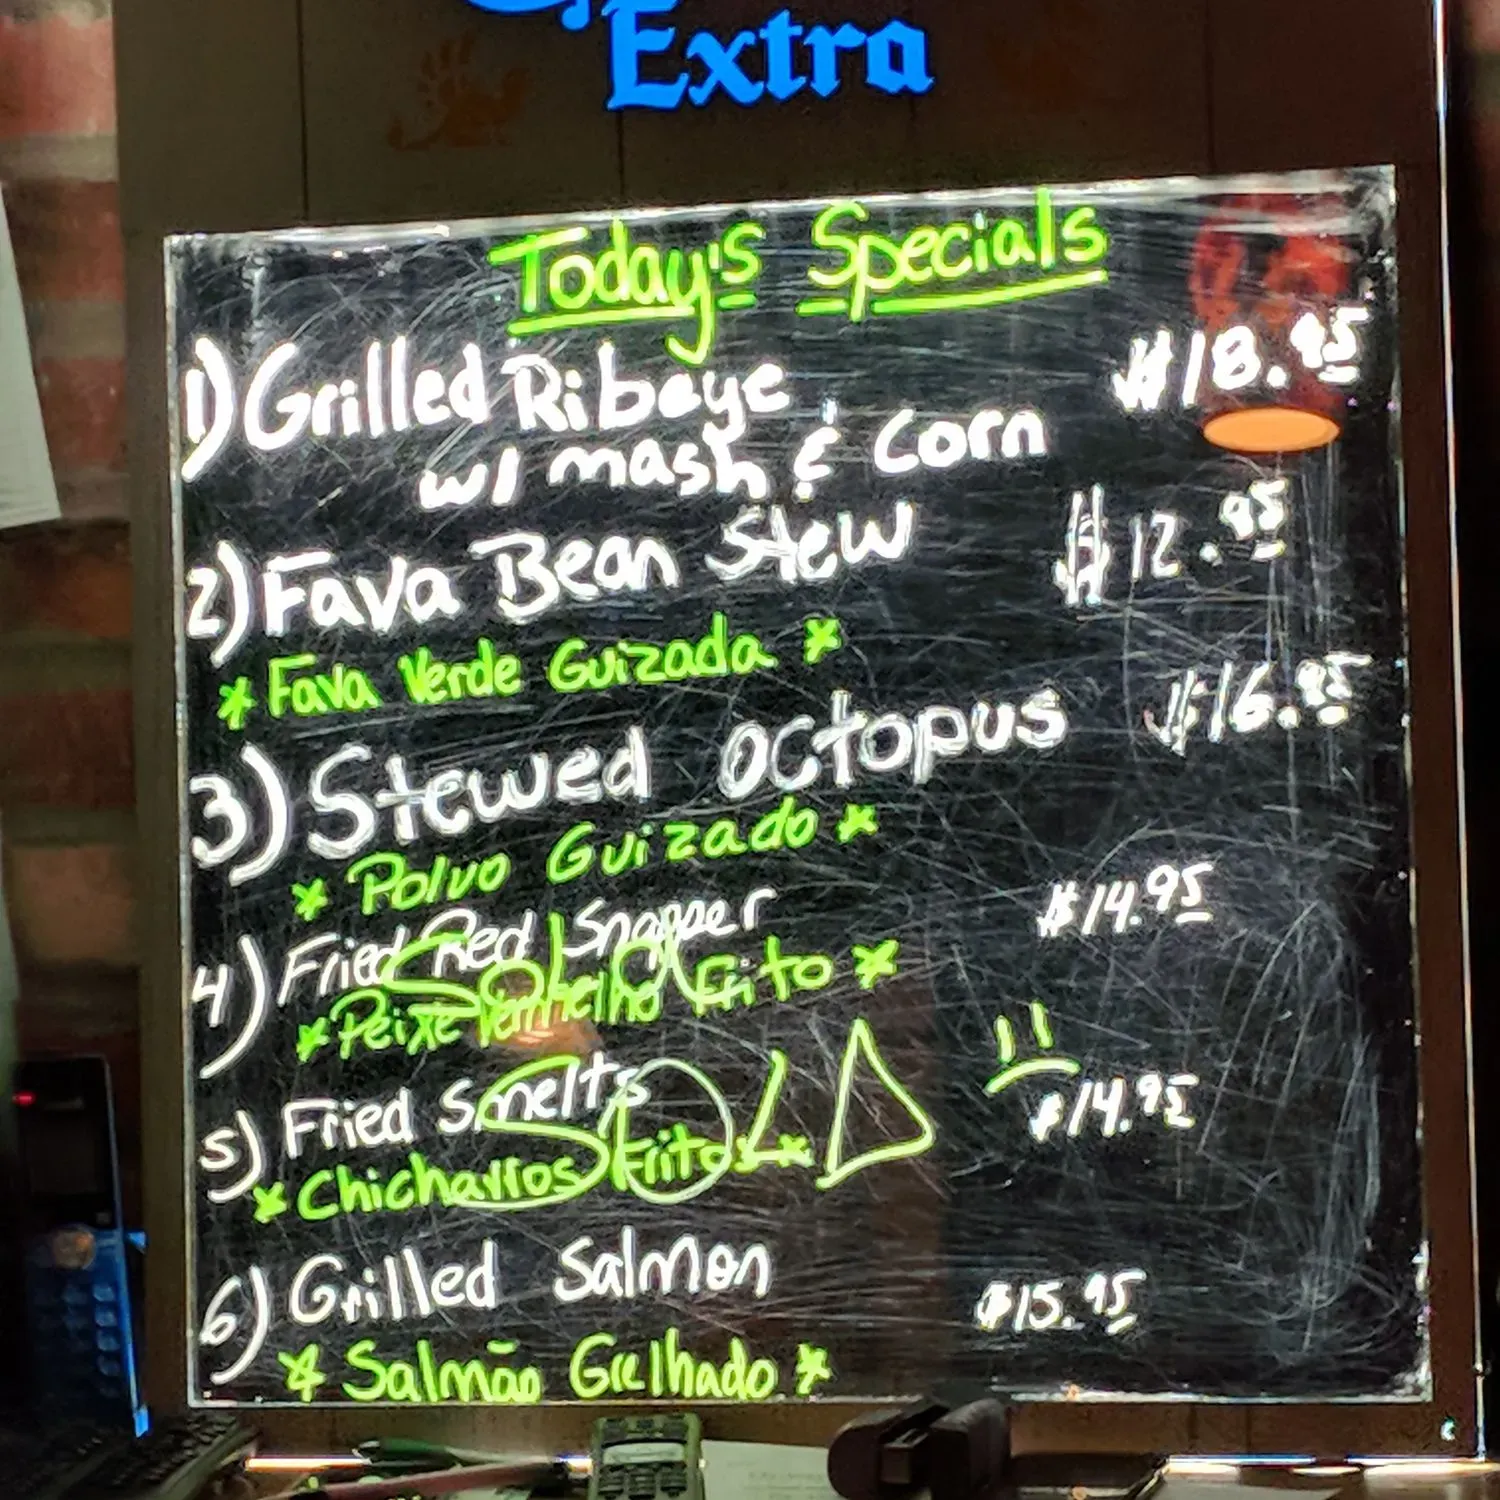 Extra
Today's Specials
1) Grilled Ribeye $18.95
w/ mash & corn
2) Fava Bean Stew $12.95
* Fava Verde Guizada *
3) Stewed Octopus $16.95
* Polvo Guizado *
4) Fried Red Snapper $14.95
* Peixe Vermelho Frito *
Sold
5) Fried Smelts $14.95
* Chicharros Fritos *
SOLD
6) Grilled Salmon $15.95
* Salmão Grelhado *